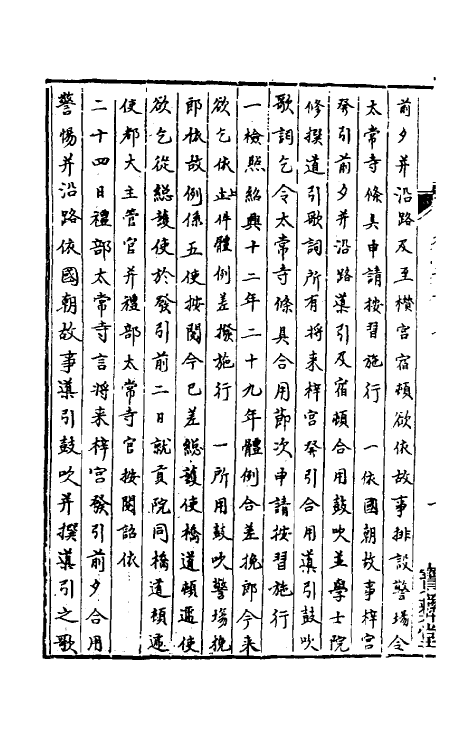 前夕并沿路及至欑宮宿頓欲依故事排設警場令
太常寺條具申請按習施行　一依國朝故事梓宮
發引前夕并沿路導引及宿頓合用鼓吹並學士院
修撰道引歌詞所有將來梓宮發引合用導引鼓吹
歌詞乞令太常寺條具合用節次申請按習施行
一檢照紹興十二年二十九年體例合差挽郎今來
欲乞依上件體例差撥施行　一所用鼓吹警塲挽
郎依故例係五使按閱今已差緫護使橋道頓遞使
欲乞從緫護使於發引前二日就貢院同橋道頓遞
使都大主管官并禮部太常寺官按閱詔依
二十四日禮部太常寺言將来梓宮發引前夕合用
警惕并沿路依國朝故事導引鼓吹并撰導引之歌